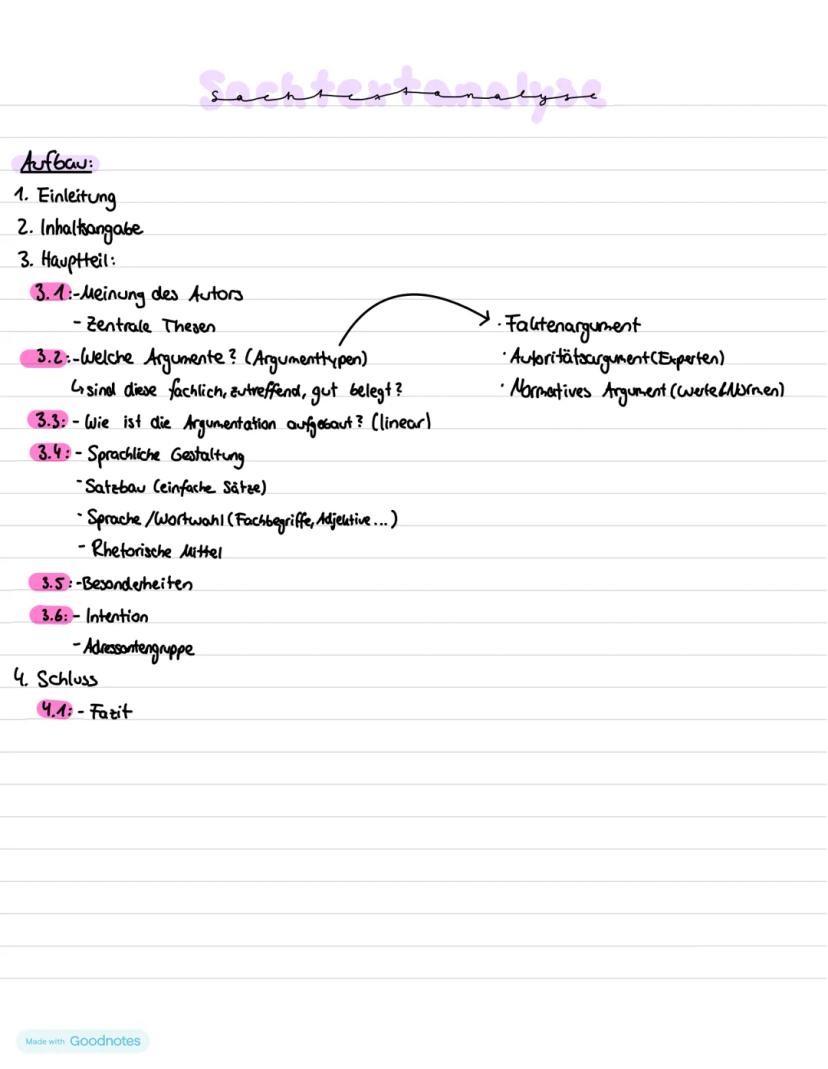 Sachtextanalyse
Aufbau:
1. Einleitung
2. Inhaltsangabe
3. Hauptteil:
3.1:-Meinung des Autors
- Zentrale Thesen
3.2:-Welche Argumente? (Argumenttypen)
↳ sind diese fachlich, zutreffend, gut belegt?
· Faktenargument
· Autoritätsargument (Experten)
· Normatives Argument (Werte & Normen)
3.3: - Wie ist die Argumentation aufgebaut? (linear)
3.4: - Sprachliche Gestaltung
- Satzbau (einfache Sätze)
- Sprache/Wortwahl (Fachbegriffe, Adjektive...)
- Rhetorische Mittel
3.5:-Besonderheiten
3.6:- Intention
- Adressantengruppe
4. Schluss
4.1: - Fazit
Made with Goodnotes